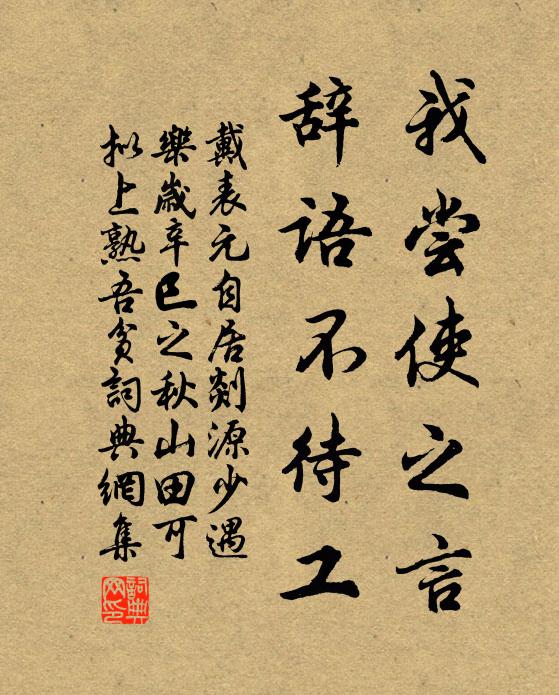 我尝使之言
辞语不待工
戴表元自居剡源少遇
樂歲辛巳之秋山田可
拟上熟吾贫詞典網集
詞典网印